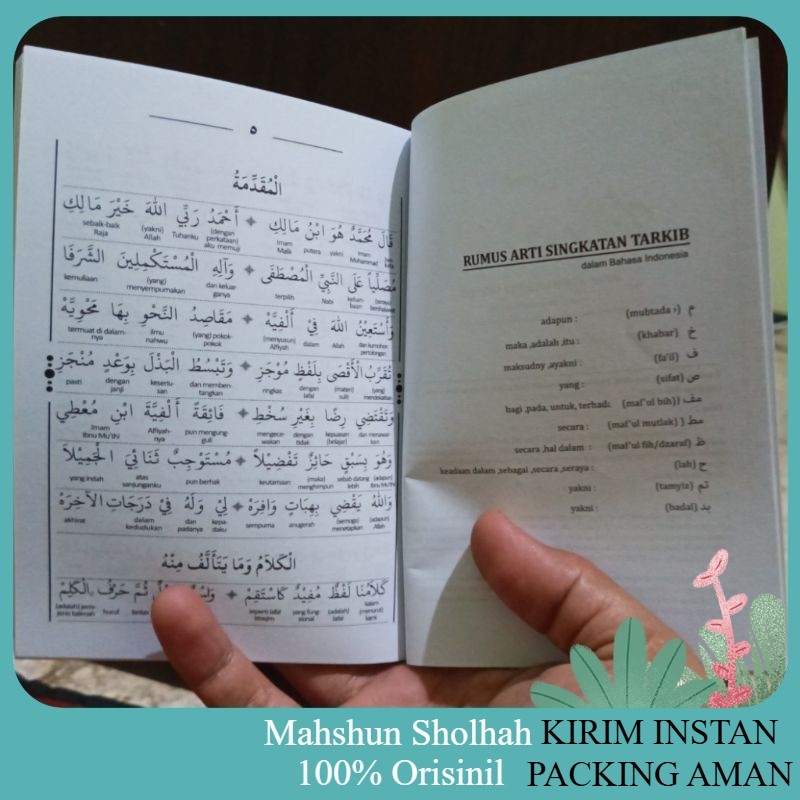 RUMUS ARTI SINGKATAN TARKIB
dalam Bahasa Indonesia
adapun : (mubtada') م
maka ,adalah ,itu : (khabar) خ
maksudny ,ayakni : (fa'il) ف
yang : (sifat) ص
bagi ,pada, untuk, terhad: (maf'ul bih)) مف
secara : (maf'ul mutlak) ) مط
secara ,hal dalam : (maf'ul fih/dzaraf) ظ
keadaan dalam ,sebagai ,secara ,seraya : (lah) ح
yakni : (tamyiz) تم
yakni : (badal) بد
٥
الْمُقَدِّمَةُ
قَالَ مُحَمَّدٌ هُوَ ابْنُ مَالِكِ ✦ أَحْمَدُ رَبِّي اللهَ خَيْرَ مَالِكِ
sebaik-baik Raja (yakni) Allah Tuhanku (dengan perkataan) aku memuji Imam Malik putera yakni Imam Muhammad
مُصَلِّيًا عَلَى النَّبِيِّ الْمُصْطَفَى ✦ وَآلِهِ الْمُسْتَكْمِلِينَ الشَّرَفَا
kemuliaan (yang) menyempurnakan dan keluarganya terpilih Nabi
وَأَسْتَعِيْنُ اللهَ فِيْ أَلْفِيَّهْ ✦ مَقَاصِدُ النَّحْوِ بِهَا مَحْوِيَّهْ
termuat di dalamnya ilmu nahwu (yang) pokok-pokok (menyusun) Alfiyah dalam Allah dan kumohon pertolongan
تُقَرِّبُ الْأَقْصَى بِلَفْظٍ مُوْجَزِ ✦ وَتَبْسُطُ الْبَذْلَ بِوَعْدٍ مُنْجَزِ
pasti dengan janji dan membentangkan ringkas dengan lafal (materi) sulit (yang) mendekatkan
وَتَقْتَضِي رِضًا بِغَيْرِ سُخْطِ ✦ فَائِقَةً أَلْفِيَّةَ ابْنِ مُعْطِي
Imam Ibnu Mu'thi Alfiyah-nya pun mengungguli mengecewakan dengan tidak kepuasan (belajar)
وَهُوَ بِسَبْقٍ حَائِزٌ تَفْضِيْلَا ✦ مُسْتَوْجِبٌ ثَنَائِيَ الْجَمِيْلَا
yang indah atas sanjunganku pun berhak keutamaan (maka) menghimpun sebab datang lebih (adapun) Ibnu Mu'thi
وَاللهُ يَقْضِي بِهِبَاتٍ وَافِرَهْ ✦ لِيْ وَلَهُ فِيْ دَرَجَاتِ الْآخِرَهْ
akhirat dalam kedudukan dan padanya kepadaku sempurna anugerah (semoga) menetapkan (adapun) Allah
الْكَلَامُ وَمَا يَتَأَلَّفُ مِنْهُ
كَلَامُنَا لَفْظٌ مُفِيْدٌ كَاسْتَقِمْ ✦ ثُمَّ حَرْفٌ الْكَلِمْ
(adalah) jenis-jenis kalimah huruf seperti lafal istaqim yang fungsional (adalah) lafal kalam (menurut) kami
Mahshun Sholhah KIRIM INSTAN
100% Orisinil PACKING AMAN